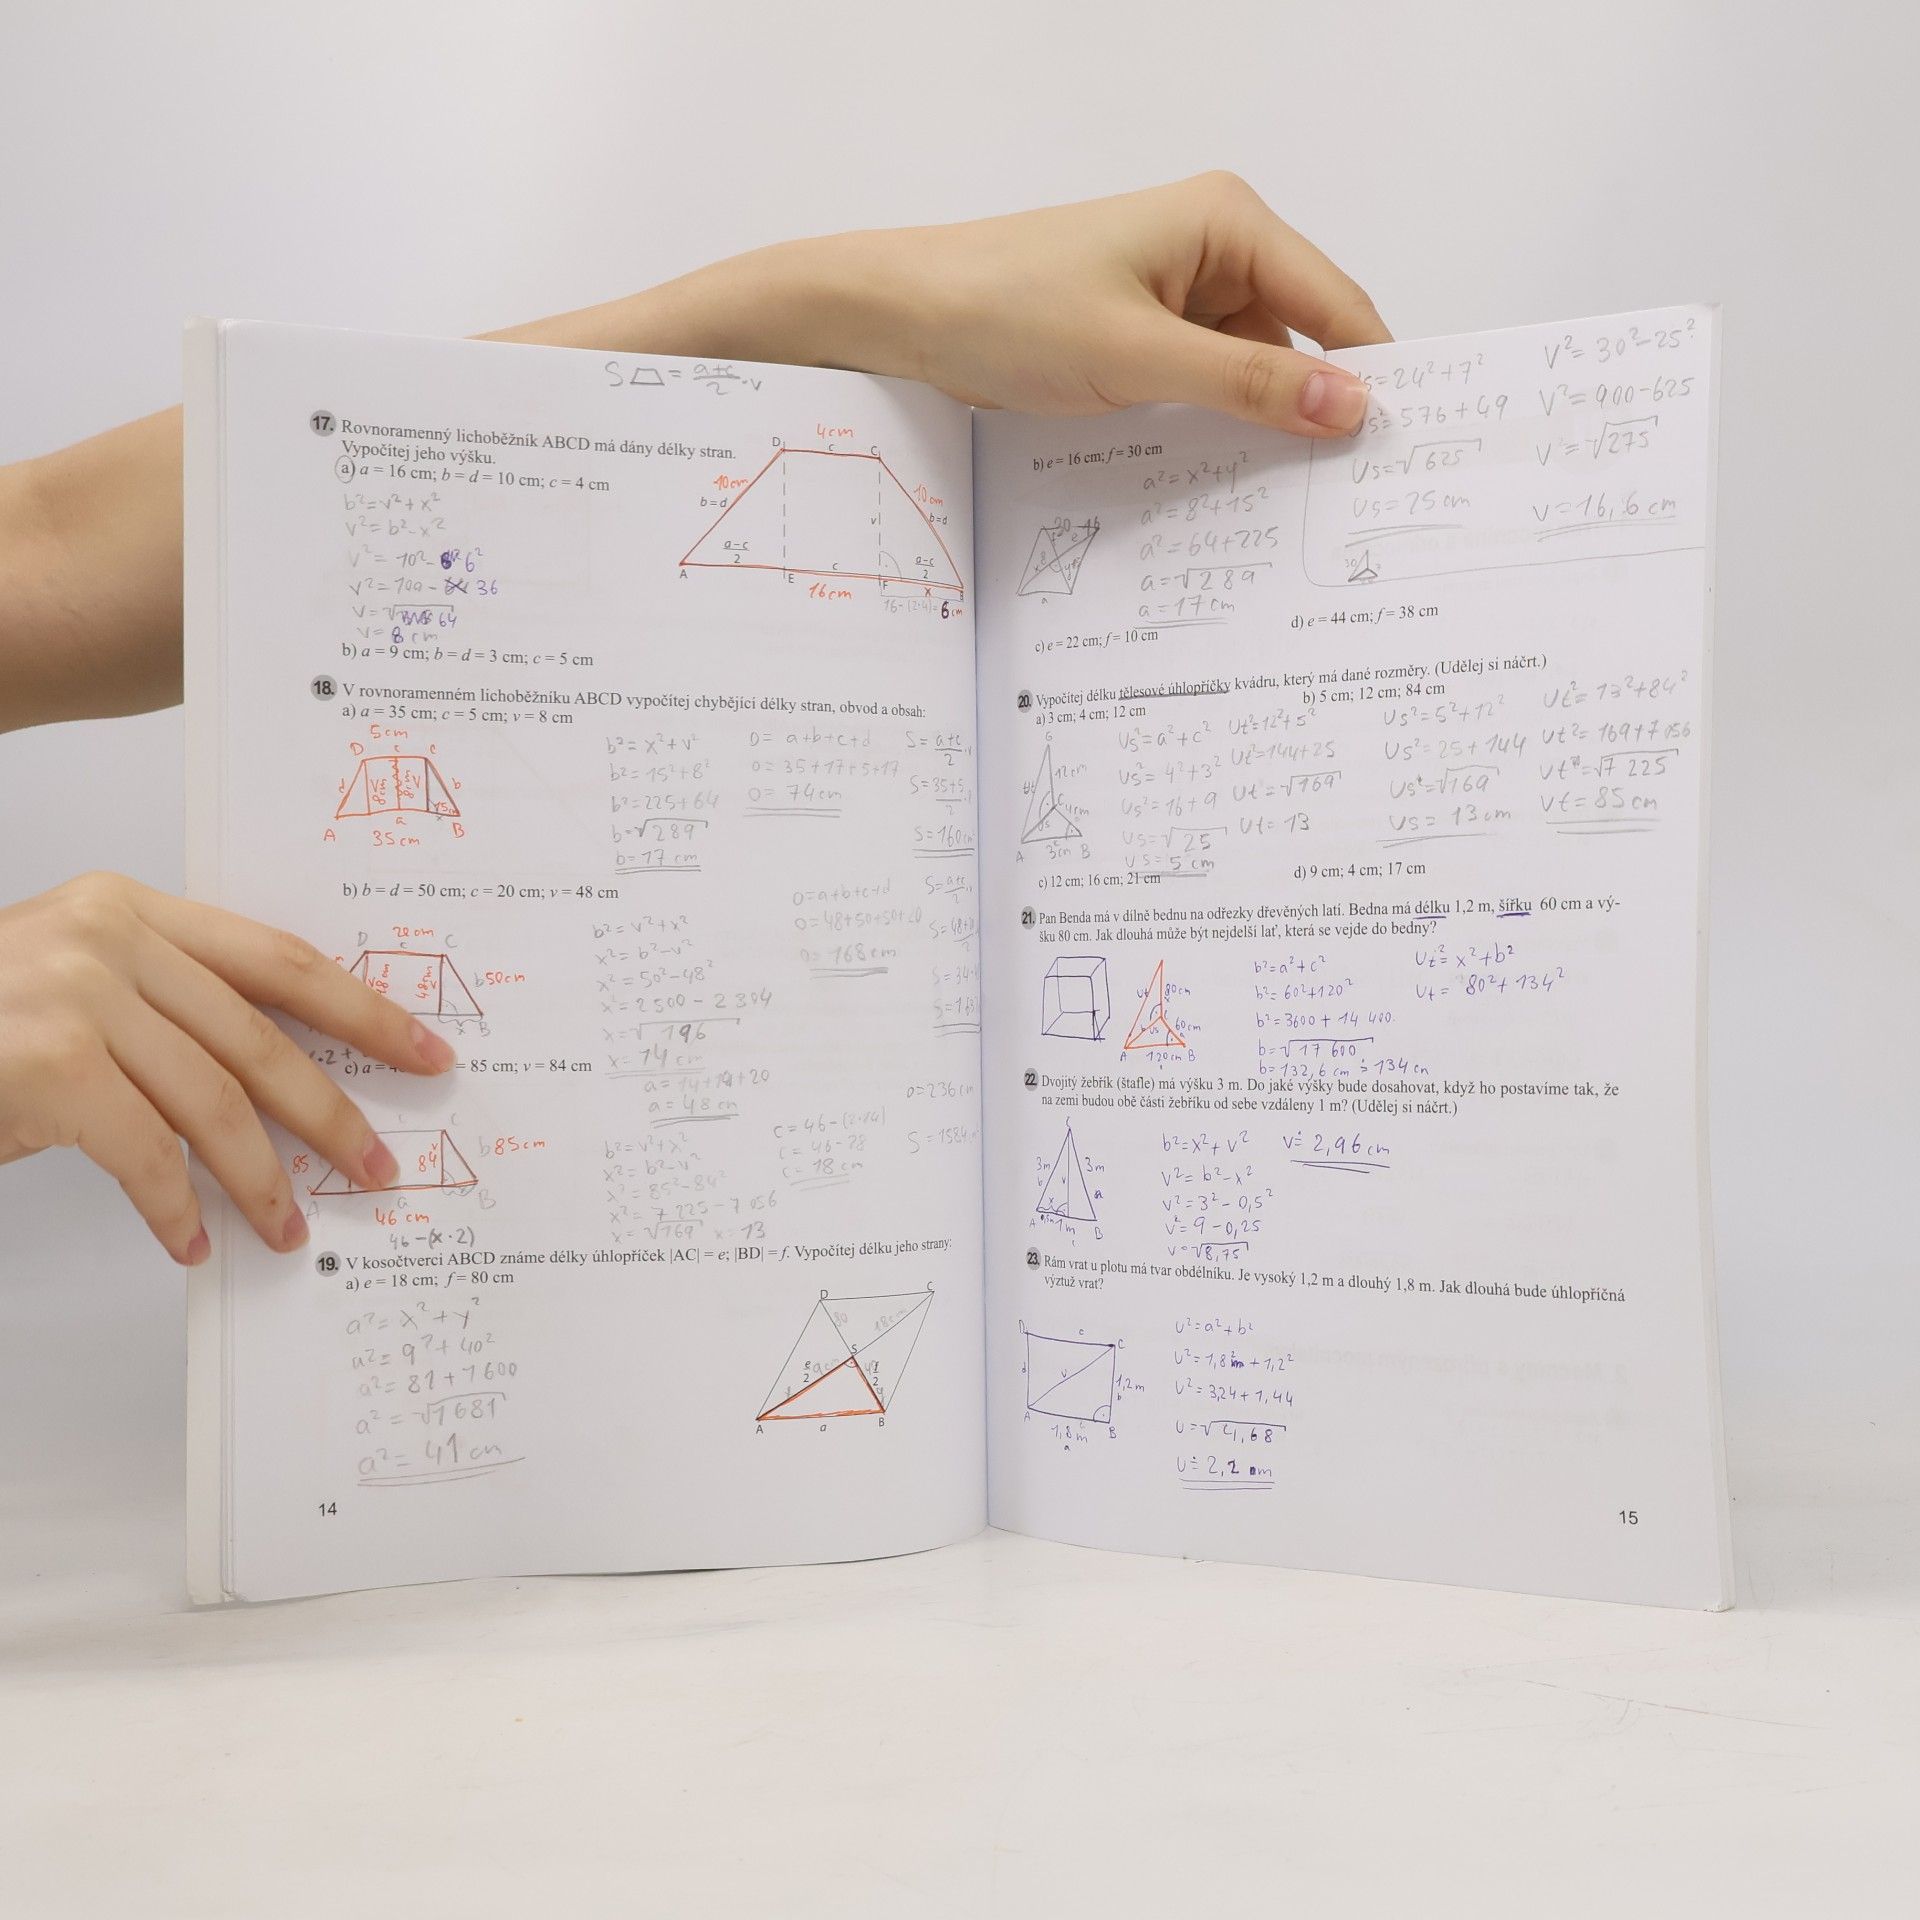 S = a+c/2 · v
17. Rovnoramenný lichoběžník ABCD má dány délky stran.
Vypočítej jeho výšku.
a) a = 16 cm; b = d = 10 cm; c = 4 cm
b² = v² + x²
v² = b² - x²
v² = 10² - 6²
v² = 100 - 36
v = √64
v = 8 cm
D 4cm C
c
10cm
b = d
10 cm
b = d
v
a–c/2
c
a–c/2
A E F
16cm
x
16-(2·4)= 6cm
b) a = 9 cm; b = d = 3 cm; c = 5 cm
18. V rovnoramenném lichoběžníku ABCD vypočítej chybějící délky stran, obvod a obsah:
a) a = 35 cm; c = 5 cm; v = 8 cm
5cm
D c C
d v 8cm 8cm v b
A a B
35cm
b² = x² + v²
b² = 15² + 8²
b² = 225 + 64
b = √289
b = 17 cm
O = a+b+c+d
O = 35+17+5+17
O = 74cm
S = a+c/2
S = 35+5/2
S = 160cm
b) b = d = 50 cm; c = 20 cm; v = 48 cm
20cm
D c C
48cm v b 50cm
x B
b² = v² + x²
x² = b² - v²
x² = 50² - 48²
x² = 2500 - 2304
x = √196
x = 14 cm
a = 14+14+20
a = 48 cm
O = a+b+c+d
O = 48+50+50+20
O = 168cm
S = a+c/2
·2 +
c) a = = 85 cm; v = 84 cm
c C
85 84 v b 85cm
A a B
46 cm
46 - (x · 2)
b² = v² + x²
x² = b² - v²
x² = 85² - 84²
x² = 7225 - 7056
x = √169 x = 13
c = 46 - (2·14)
c = 46 - 28
c = 18 cm
O = 236 cm
19. V kosočtverci ABCD známe délky úhlopříček |AC| = e; |BD| = f. Vypočítej délku jeho strany:
a) e = 18 cm; f = 80 cm
a² = x² + y²
a² = 9² + 40²
a² = 81 + 1600
a² = √1681
a² = 41 cm
D C
80 18cm
S
e/2 f/2
A a B
14
v² = 30² - 25²
v² = 900 - 625
v² = √275
v = 16,6 cm
s = 24² + 7²
us² = 576 + 49
us = √625
us = 25 cm
b) e = 16 cm; f = 30 cm
a² = x² + y²
a² = 8² + 15²
a² = 64 + 225
a = √289
a = 17 cm
30
a
c) e = 22 cm; f = 10 cm
d) e = 44 cm; f = 38 cm
20. Vypočítej délku tělesové úhlopříčky kvádru, který má dané rozměry. (Udělej si náčrt.)
a) 3 cm; 4 cm; 12 cm
b) 5 cm; 12 cm; 84 cm
us² = a² + c²
us² = 4² + 3²
us² = 16 + 9
us = √25
us = 5 cm
ut² = 12² + 5²
ut² = 144 + 25
ut = √169
ut = 13
us² = 5² + 12²
us² = 25 + 144
us² = √169
us = 13 cm
ut² = 13² + 84²
ut² = 169 + 7056
ut = √7225
ut = 85 cm
G
ut 12cm
C 4cm
us
A 3cm B
c) 12 cm; 16 cm; 21 cm
d) 9 cm; 4 cm; 17 cm
21. Pan Benda má v dílně bednu na odřezky dřevěných latí. Bedna má délku 1,2 m, šířku 60 cm a vý-
šku 80 cm. Jak dlouhá může být nejdelší lať, která se vejde do bedny?
ut 80cm
x
us 60cm
a
A 120cm B
b² = a² + c²
b² = 60² + 120²
b² = 3600 + 14 400
b = √17 600
b = 132,6 cm ≐ 134 cm
ut² = x² + b²
ut = 80² + 134²
22. Dvojitý žebřík (štafle) má výšku 3 m. Do jaké výšky bude dosahovat, když ho postavíme tak, že
na zemi budou obě části žebříku od sebe vzdáleny 1 m? (Udělej si náčrt.)
C
3m 3m
b v a
x
A 1m B
c
b² = x² + v²
v² = b² - x²
v² = 3² - 0,5²
v² = 9 - 0,25
v = √8,75
v ≐ 2,96 cm
23. Rám vrat u plotu má tvar obdélníku. Je vysoký 1,2 m a dlouhý 1,8 m. Jak dlouhá bude úhlopříčná
výztuž vrat?
D c C
d u 1,2m
b
A 1,8m B
a
u² = a² + b²
u² = 1,8² + 1,2²
u² = 3,24 + 1,44
u = √4,68
u ≐ 2,2 m
15